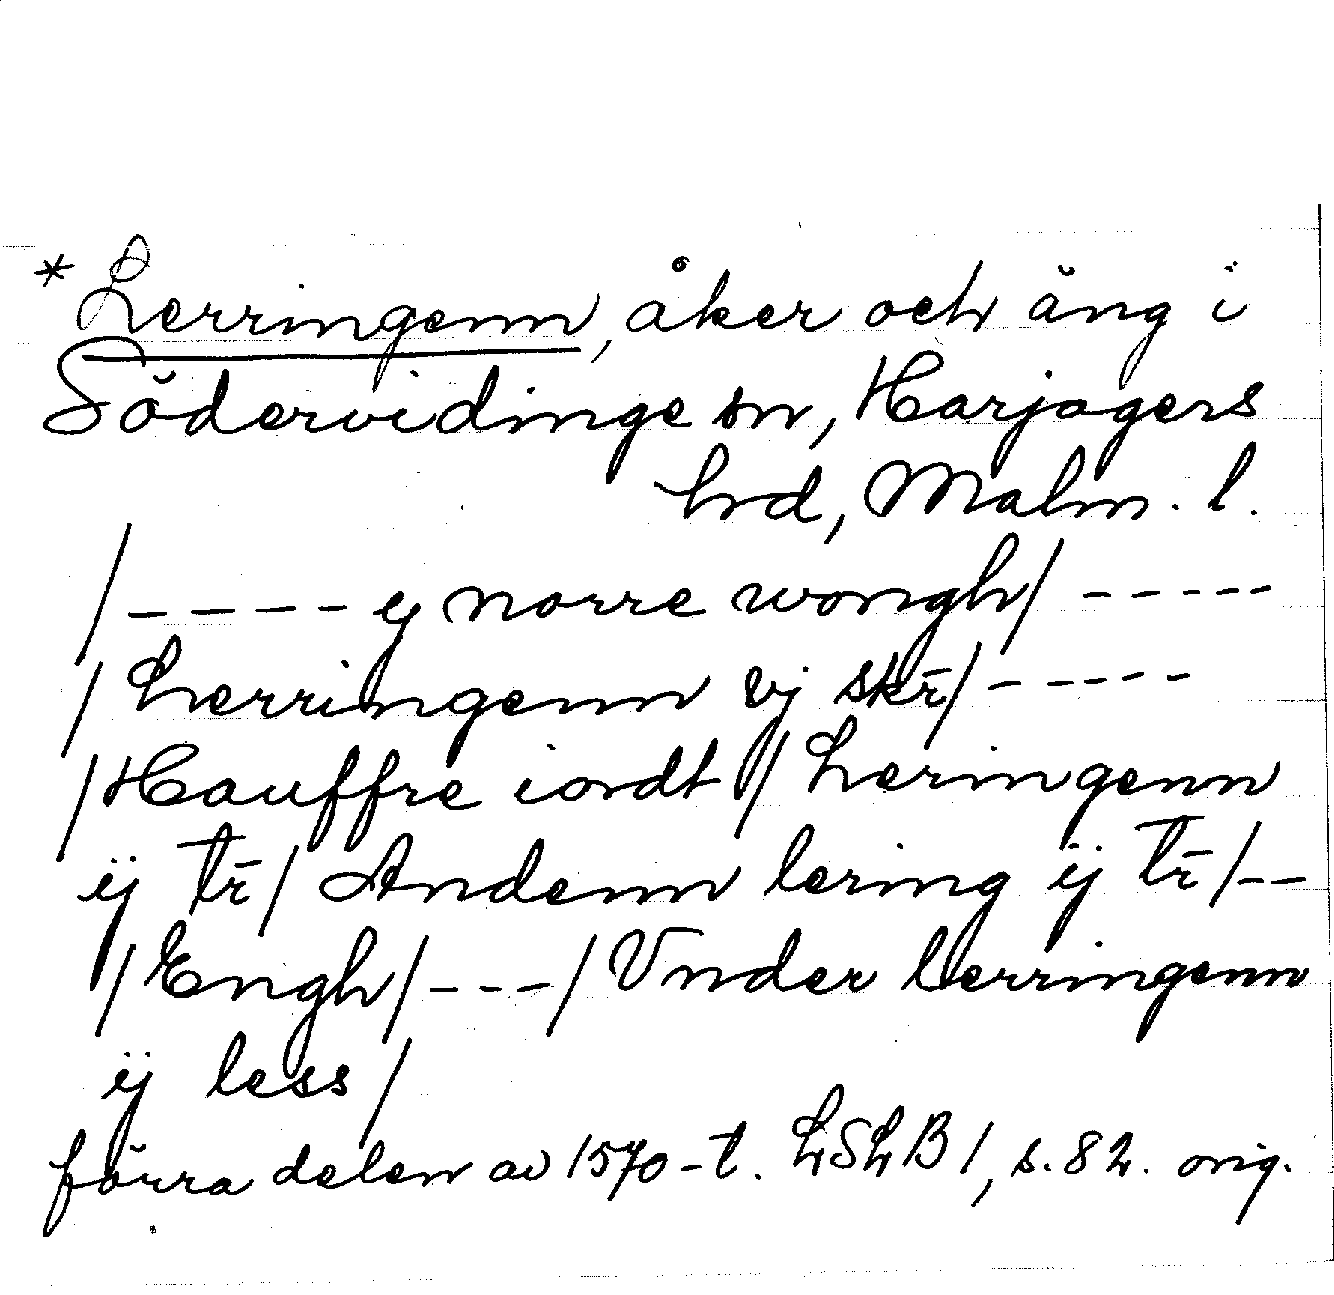 * Lerringenn, åker och äng i
Södervidinge sn, Harjagers
hrd, Malm. l.
/----- ij norre wongh/-----
/Lerringenn vj skr̄/-----
/Hauffre iordt/Leringenn
ij tr̄/Andenn lering ij tr̄/--
/Engh/---/Vnder Lerringenn
ij less/
förra delen av 1570-t. LSLB 1, s. 82. orig.